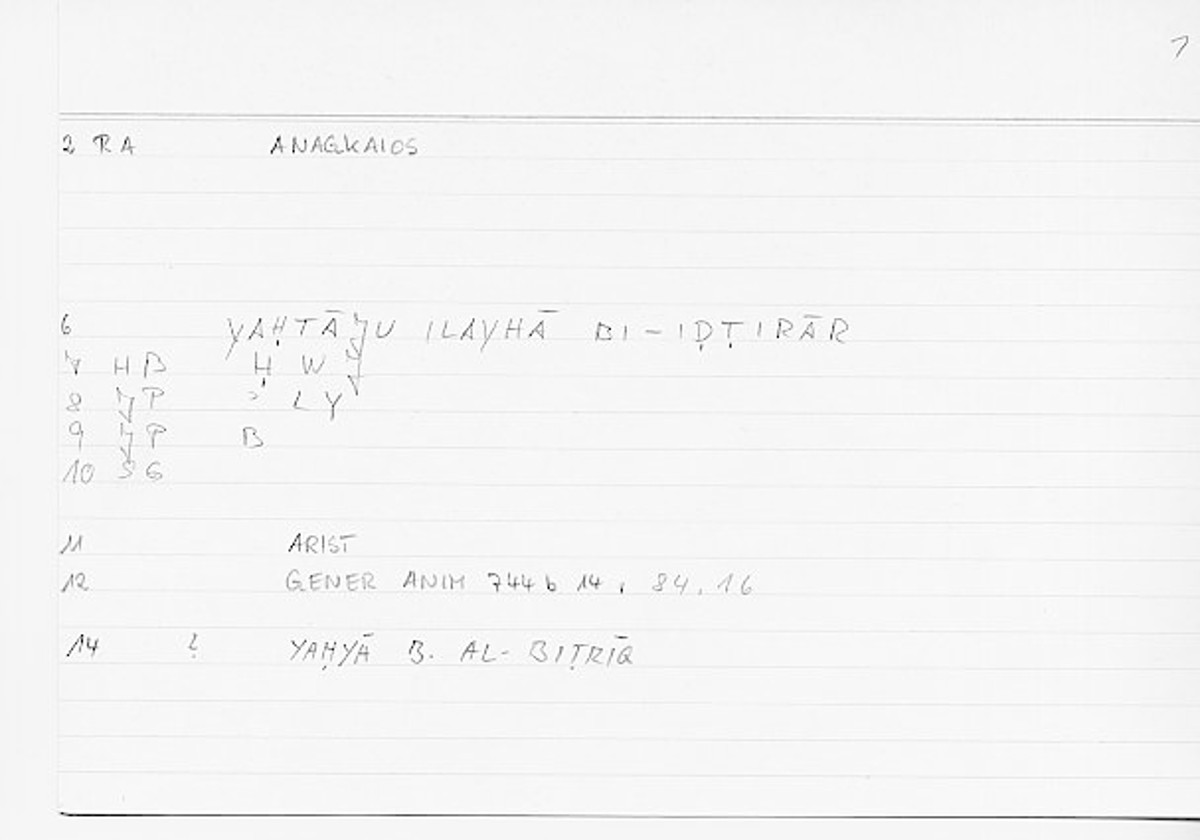 1
2 RA ANAGKAIOS
6 YAḤTĀǦU ILAYHĀ BI-IḌṬIRĀR
7 HB Ḥ W Ǧ
8 ǦP ʾ L Y
9 ǦP B
10 SG
11 ARIST
12 GENER ANIM 744 b 14, 84,16
14 ? YAḤYĀ B. AL-BIṬRĪQ